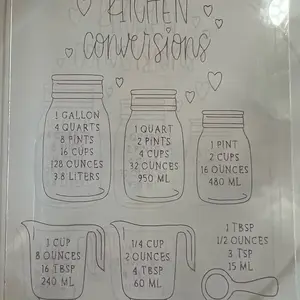 KITCHEN
conversions
1 GALLON
4 QUARTS
8 PINTS
16 CUPS
128 OUNCES
3.8 LITERS
1 QUART
2 PINTS
4 CUPS
32 OUNCES
950 ML
1 PINT
2 CUPS
16 OUNCES
480 ML
1 CUP
8 OUNCES
16 TBSP
240 ML
1/4 CUP
2 OUNCES
4 TBSP
60 ML
1 TBSP
1/2 OUNCES
3 TSP
15 ML